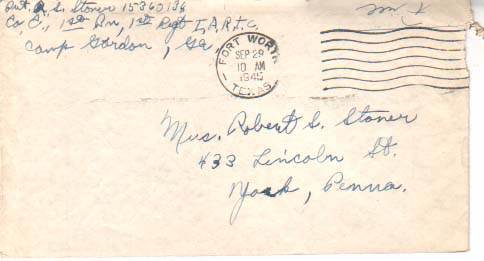 Pvt. R. S. Stoner 15360136
Co. C., 1st Bn, 1st Regt I.A.R.T.C.
Camp Gordon, Ga
Free
FORT WORTH
SEP 29
10 AM
1945
TEXAS
Mrs. Robert S. Stoner
433 Lincoln St.
York, Penna.